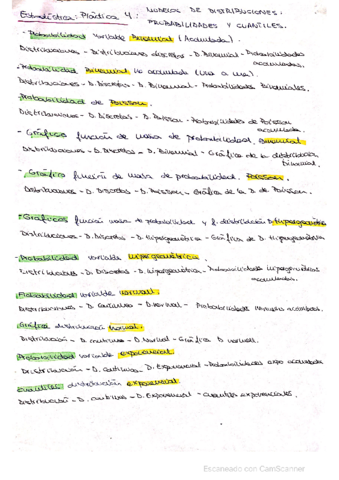 Estadística: Práctica 4: MODELOS DE DISTRIBUCIONES.
PROBABILIDADES Y CUANTILES.
- Probabilidad variable Binomial (Acumulada).
Distribuciones - Distribuciones discretas - D. Binomial - Probabilidades
acumuladas.
- Probabilidad Binomial no acumulada (una a una).
Distribuciones - D. Discretas - D. Binomial - Probabilidades Binomiales.
Probabilidad de Poisson.
Distribuciones - D. Discretas - D. Poisson - Probabilidades de Poisson
acumuladas.
- Gráfica función de masa de probabilidad. Binomial
Distribuciones - D. Discretas - D. Binomial - Gráfica de la distribución
binomial.
- Gráfica función de masa de probabilidad. Poisson.
Distribuciones - D. Discretas - D. Poisson - Gráfica de la D. de Poisson.
- Gráficos función masa de probabilidad y f. distribución D. Hipergeométrica
Distribuciones - D. Discretas - D. Hipergeométrica - Gráfica de D. Hipergeométrica
- Probabilidad variable Hipergeométrica.
Distribuciones - D. Discretas - D. Hipergeométrica - Probabilidades Hipergeométricas
acumuladas.
Probabilidad variable normal.
Distribuciones - D. continuas - D. normal - Probabilidades normales acumuladas.
Gráfica distribución normal.
Distribución - D. continuas - D. Normal - Gráfica D. normal.
Probabilidad variable exponencial.
Distribución - D. continuas - D. Exponencial - Probabilidades expo acumulada
cuantiles distribución exponencial
Distribución - D. continuas - D. Exponencial - cuantiles exponenciales.
Escaneado con CamScanner